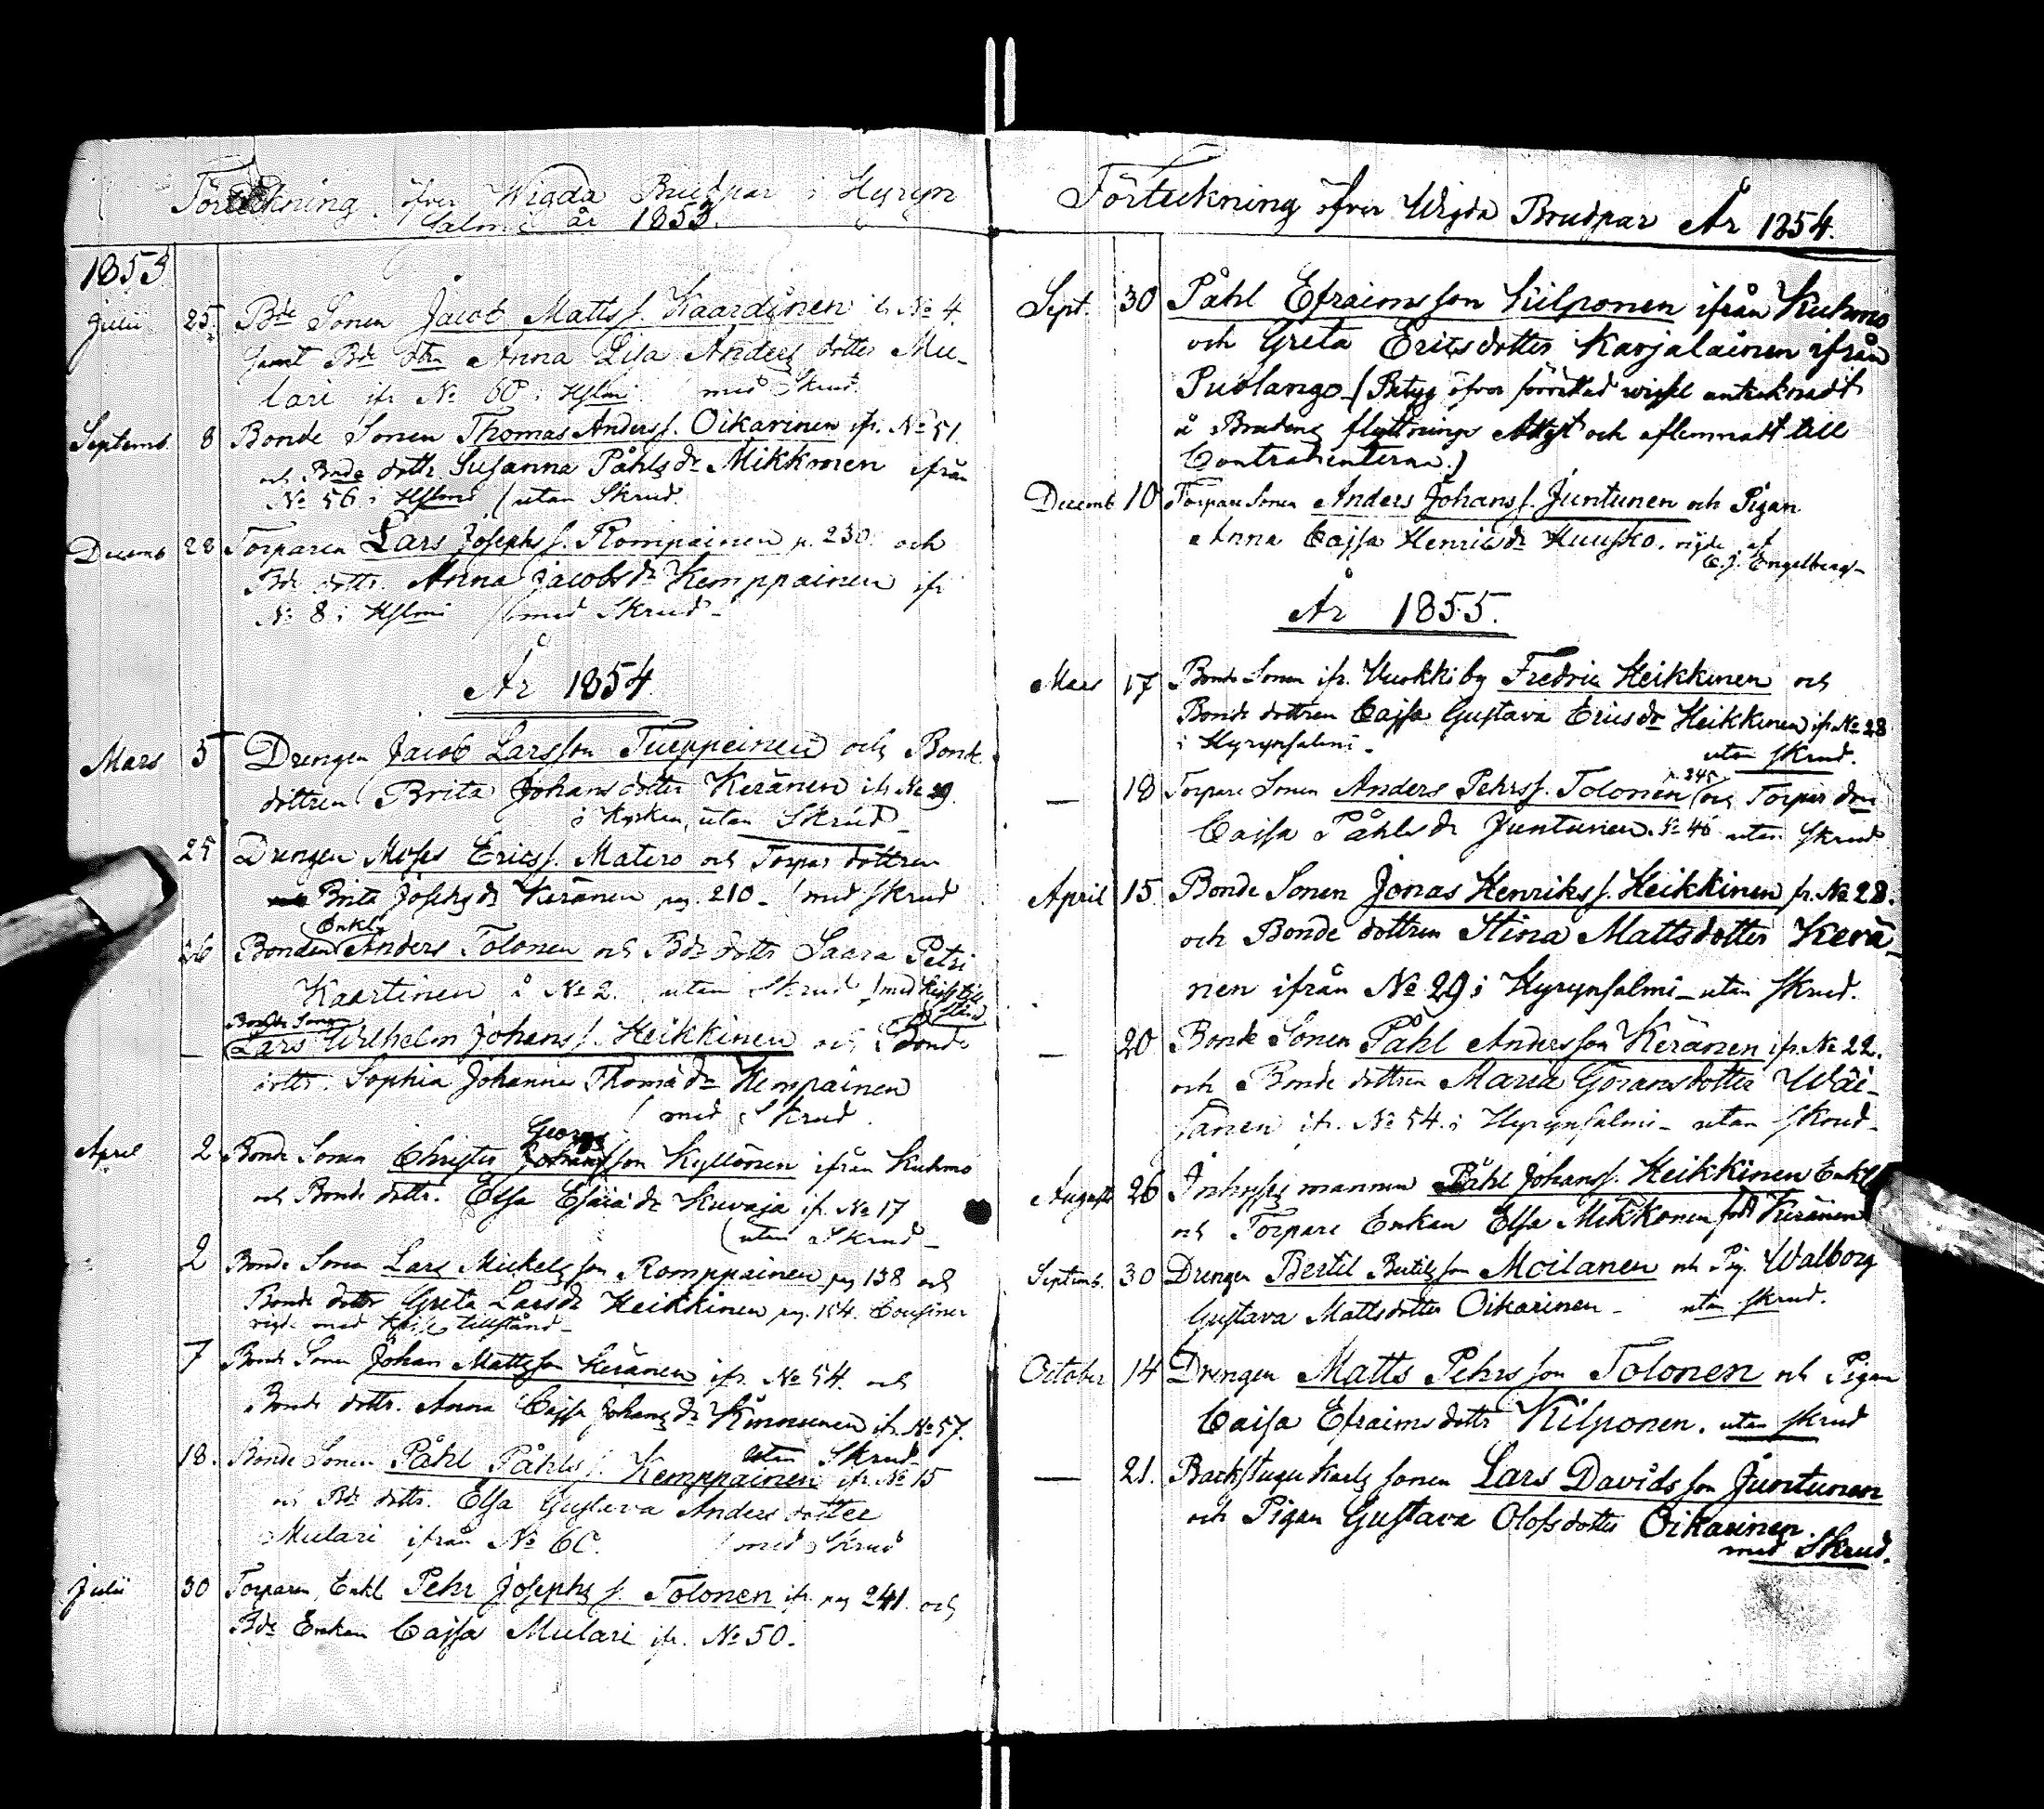 Förteckning öfver Wigda Brudpar i Hyryn
Salmi år 1853.
1853
Julii 25. Bde Sonen Jacob Matts s. Kaardinen fr No 4.
samt Bde dtrn Anna Lisa Anders dotter Mu-
lari ifr No 60 i Hslmi / med Skrud.
Septemb. 8 Bonde Sonen Thomas Anders s. Oikarinen ifr. No 51.
och Bonde dottr. Susanna Påhls dr Mikkonen ifrån
No 56 i Hslmi / utan Skrud.
Decemb 28 Torparen Lars Josephs s. Rompainen p. 230. och
Bde dottr. Anna Jacobs dr Kemppainen ifr
No 8 i Hslmi / med Skrud -
År 1854
Mars 5 Drengen Jacob Larsson Tueppeinen och Bonde
dottren Brita Johans dotter Keränen ifr No 29.
i Kyrkan, utan Skrud -
25 Drengen Moses Erics s. Matero och Torpar dottren
Brita Josephs dr Keränen pag. 210 - / med Skrud
Enkl.
26 Bonden Anders Tolonen och Bde dottr Saara Petri
Kaartinen å No 2. utan Skrud / med
Bonde Sonen
— Lars Wilhelm Johans s. Heikkinen och Bonde
dottr. Sophia Johanna Thomæ dr Kempainen
/ med Skrud.
Georgs
April 2 Bonde Sonen Christer Johansson Kyllönen ifrån Kuhmo
och Bonde dottr. Elsa Esaiæ dr Kuvaja if. No 17
(utan Skrud -
2 Bonde Sonen Lars Mickelsson Romppainen pag 138 och
Bonde dottr Greta Lars dr Heikkinen pag. 154. Cousiner
vigde med Kejs. tillstånd -
7 Bonde Sonen Johan Mattsson Keränen ifr. No 54. och
Bonde dottr. Anna Cajsa Johans dr Kinnunen ifr. No 57.
utan Skrud -
18. Bonde Sonen Påhl Påhls s. Kemppainen ifr. No 15
och Bde dottr. Elsa Gustava Anders dotter
Mulari ifrån No 60. / med Skrud
Julii 30 Torparen, Enkl Pehr Josephs s. Tolonen ifr. pag 241. och
Bde Enkan Cajsa Mulari ifr. No 50.
Förteckning öfver Wigda Brudpar År 1854.
Sept. 30 Påhl Efraimsson Kilponen ifrån Kuhmo
och Greta Ericsdotter Karjalainen ifrån
Puolango (Betyg öfver förrättad wigsel antecknadt
å Brudens flyttnings Attest och aflemnadt till
Contrahenterna.)
Decemb. 10 Torpare Sonen Anders Johans s. Juntunen och Pigan
Anna Cajsa Henrics dr Huusko. vigde af
C. J. Engelberg -
År 1855.
Mars 17 Bonde Sonen ifr. Vuokki by Fredric Heikkinen och
Bonde dottren Cajsa Gustava Erics dr Heikkinen ifr No 28
i Hyrynsalmi - utan skrud.
p. 245
— 18 Torpare Sonen Anders Pehrs s. Tolonen och Torpar dtrn
Caisa Påhls dr Juntunen. No 46 utan Skrud
April 15. Bonde Sonen Jonas Henriks s. Heikkinen fr. No 28.
och Bonde dottren Stina Mattsdotter Kerä-
nen ifrån No 29 i Hyrynsalmi - utan Skrud.
— 20 Bonde Sonen Påhl Andersson Keränen ifr. No 22.
och Bonde dottren Maria Göransdotter Wäi-
sänen ifr. No 54. i Hyrynsalmi - utan Skrud -
Augusti 26 Inhyses mannen Påhl Johans s. Heikkinen Enkl
och Torpare Enkan Elsa Mikkonen född Keränen
Septemb. 30 Drengen Bertil Bertilsson Moilanen och Pig. Walborg
Gustava Mattsdotter Oikarinen - utan skrud.
October 14 Drengen Matts Pehrsson Tolonen och Pigan
Caisa Efraimsdottr Kilponen. utan skrud
— 21. Backstugu Karls sonen Lars Davidsson Juntunen
och Pigan Gustava Olofsdotter Oikarinen.
med Skrud.